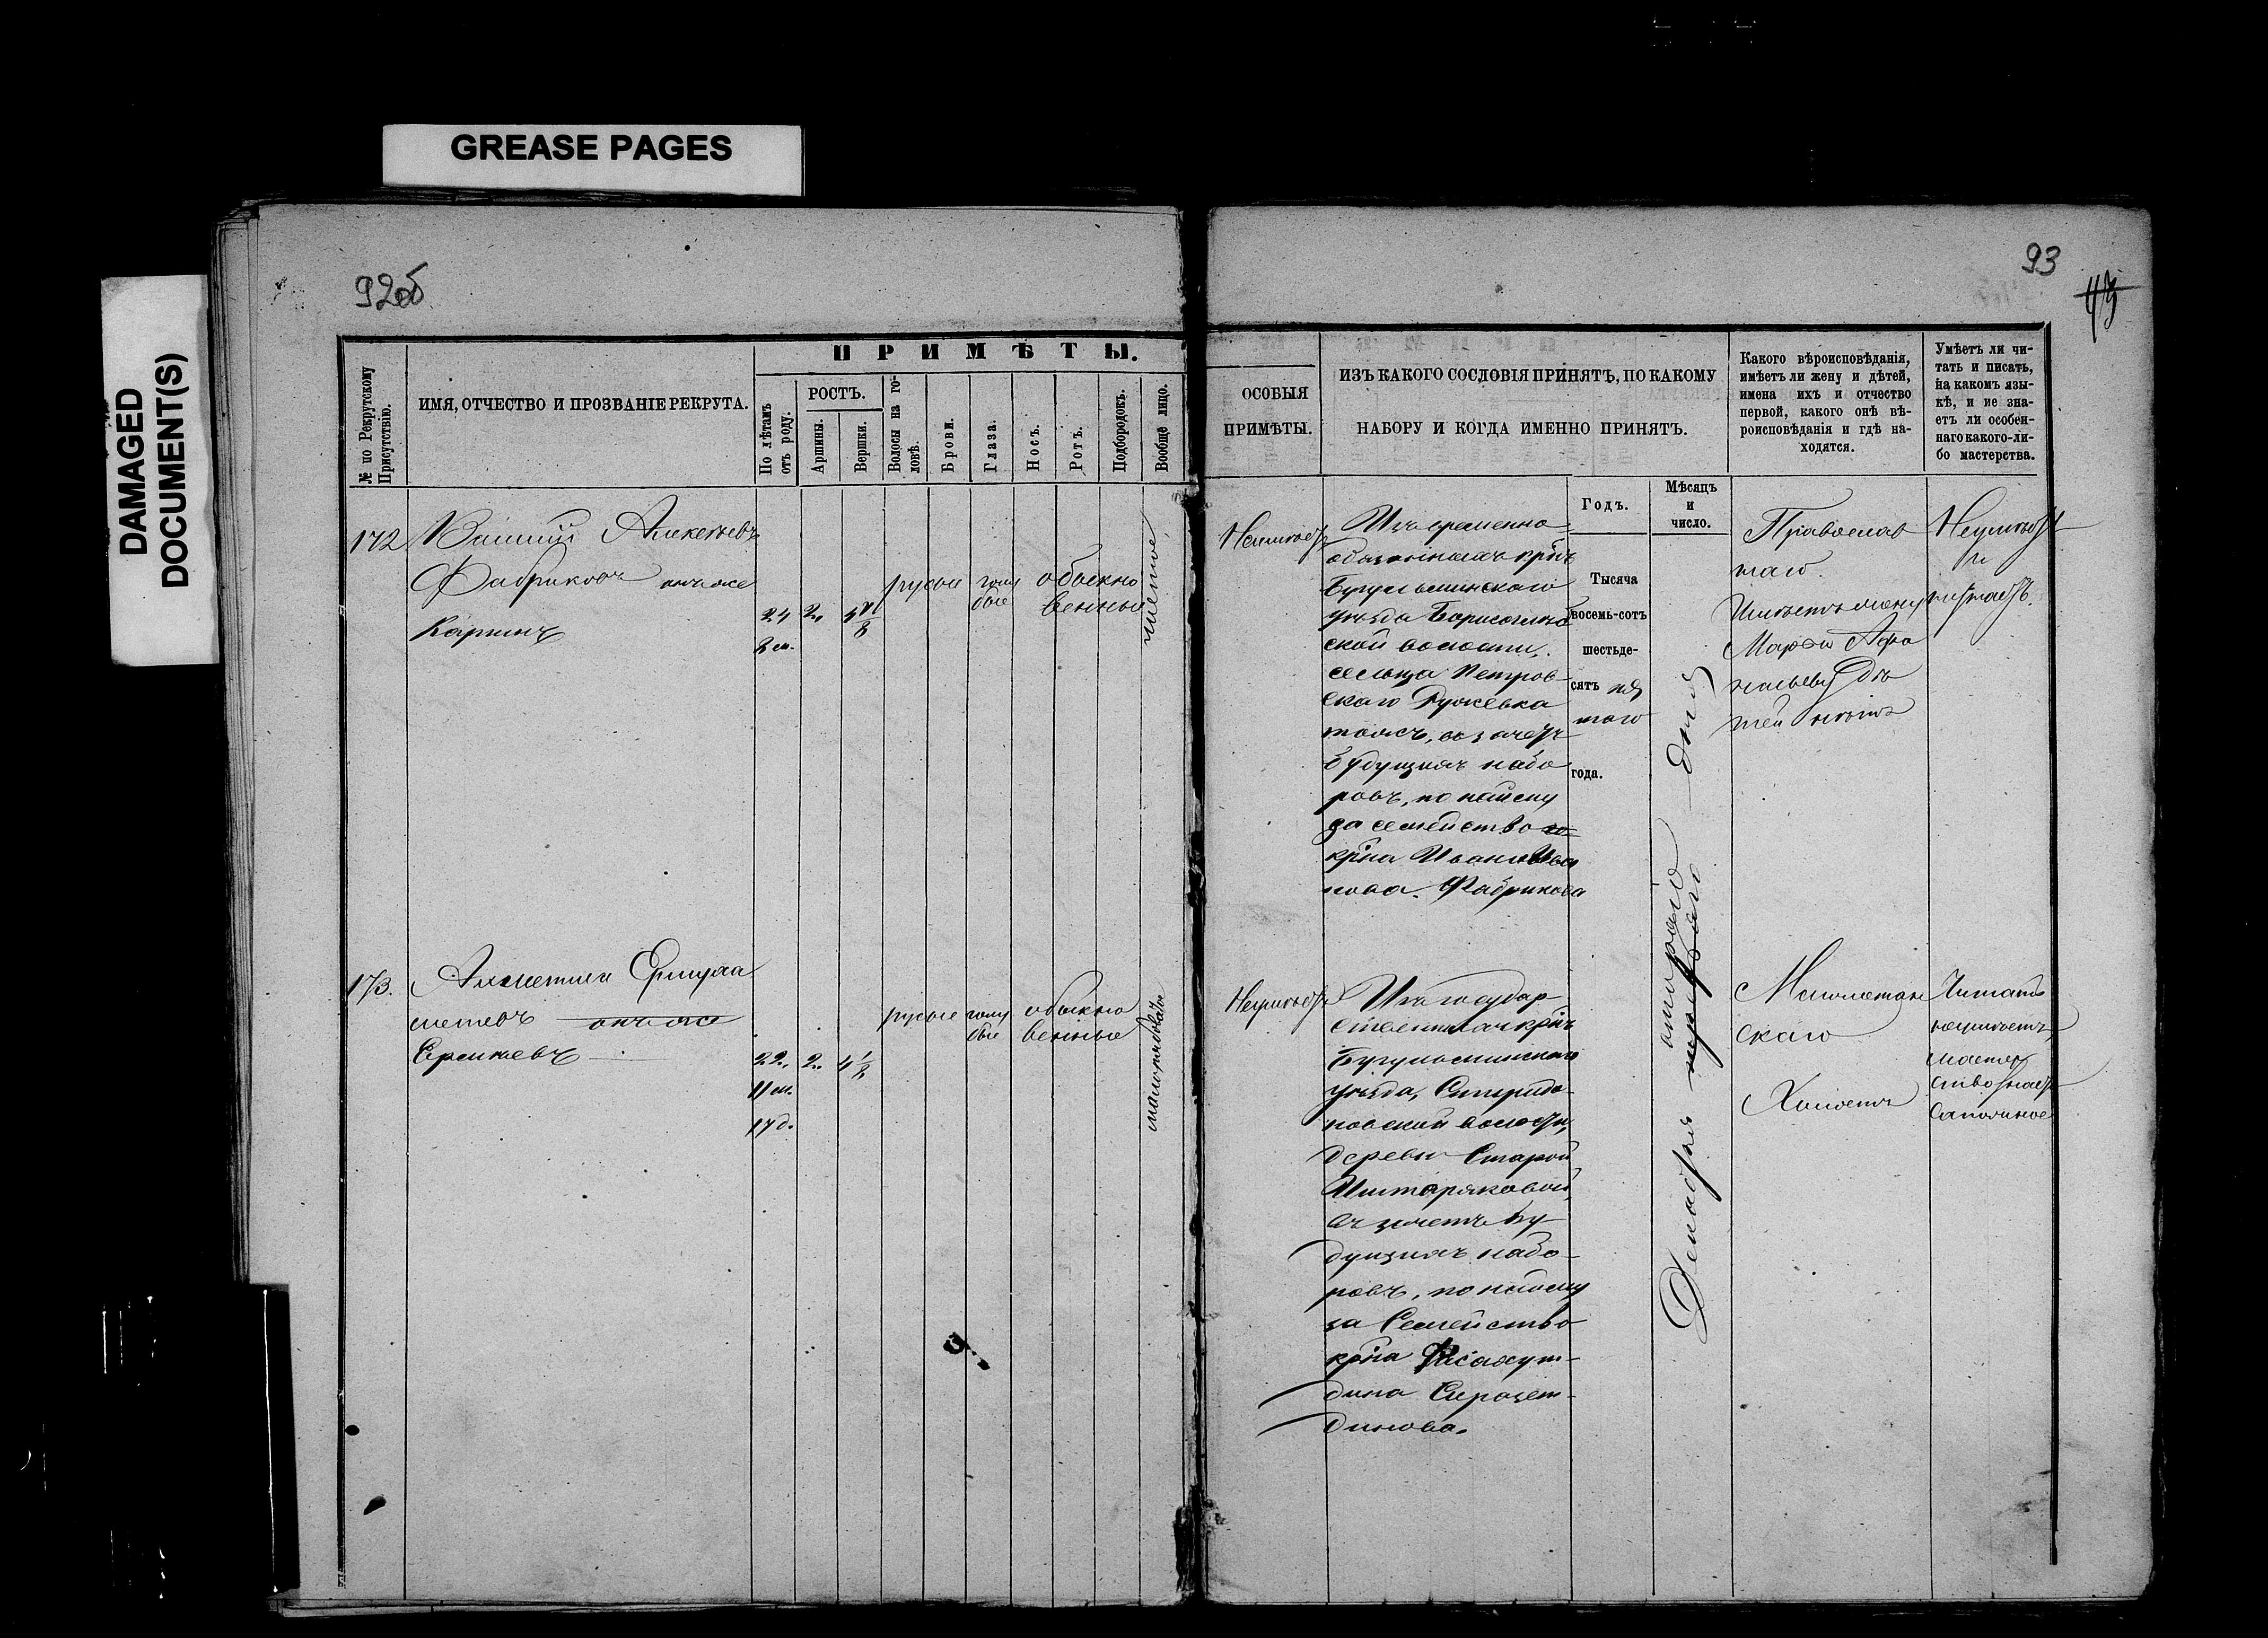 GREASE PAGES
DAMAGED
DOCUMENT(S)
92об
№ по Рекрутскому
Присутствію.
ИМЯ, ОТЧЕСТВО И ПРОЗВАНІЕ РЕКРУТА.
ПРИМѢТЫ.
По лѣтамъ
отъ роду.
РОСТЪ.
Аршины.
Вершки.
Волосы на го-
ловѣ.
Брови.
Глаза.
Носъ.
Ротъ.
Подбородокъ.
Вообще лицо.
172
Алексѣевъ
Фабриковъ онъ же
Карпинъ
24
2 м.
2.
русые
голу
бые
обыкно
венные
чистое
173.
Ахметша Ермуха
метевъ онъ же
Ермкеевъ
22.
11 м.
17 д.
2.
4 1/8
русые
голу
бые
обыкно
венные
93
ОСОБЫЯ
ПРИМѢТЫ.
ИЗЪ КАКОГО СОСЛОВІЯ ПРИНЯТЪ, ПО КАКОМУ
НАБОРУ И КОГДА ИМЕННО ПРИНЯТЪ.
Годъ.
Мѣсяцъ
и
число.
Какого вѣроисповѣданія,
имѣетъ ли жену и дѣтей,
имена ихъ и отчество
первой, какого онѣ вѣ-
роисповѣданія и гдѣ на-
ходятся.
Умѣетъ ли чи-
тать и писать,
на какомъ язы-
кѣ, и не зна-
етъ ли особен-
наго какого-ли-
бо мастерства.
Неимѣетъ
Изъ временно
обязанныхъ крнъ
Бугульминскаго
уѣзда Борисоглѣб
ской волости,
сельца Петров-
скаго Ружевка
тожъ, въ зачетъ
будущихъ набо
ровъ, по найму
за семейство
крна Ивана Ива
нова Фабрикова
Тысяча
восемь-сотъ
шестьде-
сятъ пя
таго
года.
Декабря перваго втораго дня
Православ
наго.
Имѣетъ жену
Марью Афа
насьеву Дѣ
тей нѣтъ
Неумѣетъ
и
незнаетъ.
Неимѣетъ
Изъ государ-
ственныхъ крнъ
Бугульминскаго
уѣзда, Спиридо-
новской волости,
деревни Старой
Иштеряковой,
въ зачетъ бу-
дущихъ набо-
ровъ, по найму
за Семейство
крна
дина Сиразет-
динова.
Магометан
скаго
Холостъ
Читать
неумѣетъ,
мастер
ство знаетъ
Сапожное